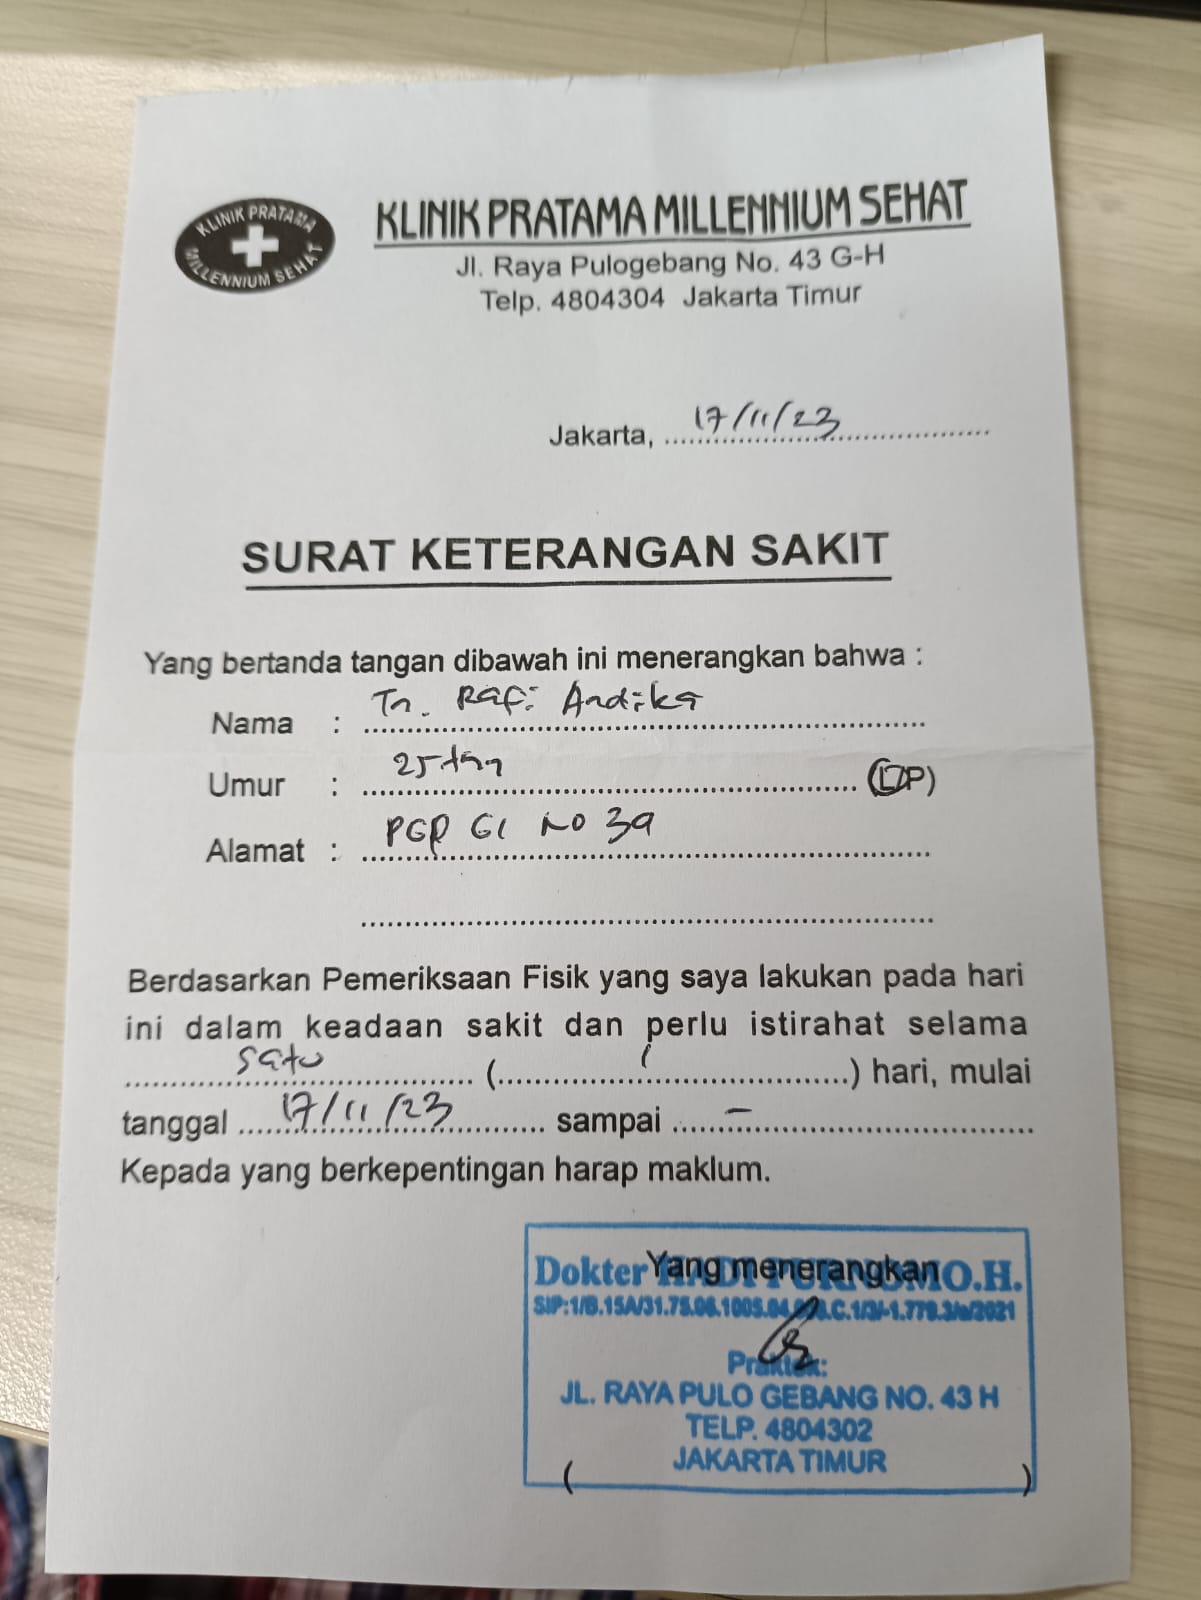 KLINIK PRATAMA
MILLENNIUM SEHAT
KLINIK PRATAMA MILLENNIUM SEHAT
Jl. Raya Pulogebang No. 43 G-H
Telp. 4804304 Jakarta Timur
Jakarta, 17/11/23
SURAT KETERANGAN SAKIT
Yang bertanda tangan dibawah ini menerangkan bahwa :
Nama : Tn. Rafi Andika
Umur : 25 thn (L/P)
Alamat : PGP G1 No 39
Berdasarkan Pemeriksaan Fisik yang saya lakukan pada hari
ini dalam keadaan sakit dan perlu istirahat selama
satu (1) hari, mulai
tanggal 17/11/23 sampai -
Kepada yang berkepentingan harap maklum.
Yang menerangkan
Dokter O.H.
Praktek:
JL. RAYA PULO GEBANG NO. 43 H
TELP. 4804302
JAKARTA TIMUR
( )